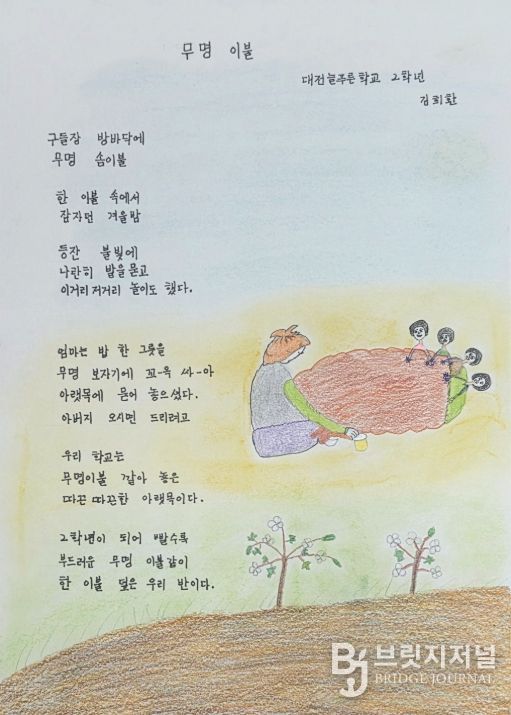 무명 이불
대전늘푸른학교 2학년
김희환
구들장 방바닥에
무명 솜이불
한 이불 속에서
잠자던 겨울밤
등잔 불빛에
나란히 발을 묻고
이거리저거리 놀이도 했다.
엄마는 밥 한 그릇을
무명 보자기에 꼬-옥 싸-아
아랫목에 묻어 놓으셨다.
아버지 오시면 드리려고
우리 학교는
무명이불 깔아 놓은
따끈따끈한 아랫목이다.
2학년이 되어 빨수록
부드러운 무명 이불같이
한 이불 덮은 우리 반이다.
브릿지저널
BRIDGE JOURNAL